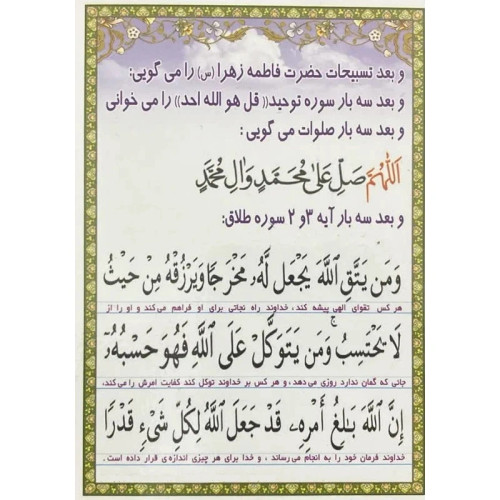 و بعد تسبیحات حضرت فاطمه زهرا (س) را می گویی:
و بعد سه بار سوره توحید(( قل هو الله احد)) را می خوانی
و بعد سه بار صلوات می گویی :
اَللّهُمَّ صَلِّ عَلیٰ مُحَمَّدٍ وَالِ مُحَمَّدٍ
و بعد سه بار آیه ۳و ۲ سوره طلاق:
وَمَن يَتَّقِ ٱللَّهَ يَجْعَل لَّهُۥ مَخْرَجًا وَيَرْزُقْهُ مِنْ حَيْثُ
هر کس تقوای الهی پیشه کند، خداوند راه نجاتی برای او فراهم می‌کند و او را از
لَا يَحْتَسِبُ ۚ وَمَن يَتَوَكَّلْ عَلَى ٱللَّهِ فَهُوَ حَسْبُهُۥٓ
جائی که گمان ندارد روزی می‌دهد، و هر کس بر خداوند توکل کند کفایت امرش را می‌کند،
إِنَّ ٱللَّهَ بَـٰلِغُ أَمْرِهِۦ ۚ قَدْ جَعَلَ ٱللَّهُ لِكُلِّ شَىْءٍ قَدْرًا
خداوند فرمان خود را به انجام می‌رساند ، و خدا برای هر چیزی اندازه‌ی قرار داده است .